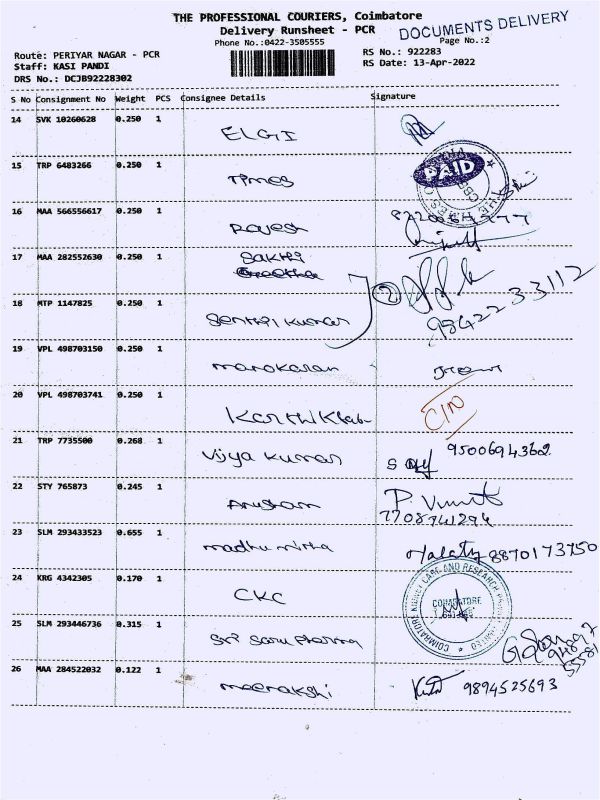 THE PROFESSIONAL COURIERS, Coimbatore
Delivery Runsheet - PCR
DOCUMENTS DELIVERY
Phone No.:0422-3505555
Page No.:2
Route: PERIYAR NAGAR - PCR
RS No.: 922283
Staff: KASI PANDI
RS Date: 13-Apr-2022
DRS No.: DCJB92228302
S No Consignment No Weight PCS Consignee Details Signature
14 SVK 10260628 0.250 1 ELGI
15 TRP 6483266 0.250 1 Times
PAID
16 MAA 566556617 0.250 1 Rajesh
17 MAA 282552630 0.250 1 Sakthi
Geetha
18 MTP 1147825 0.250 1 Senthil Kumar 2 9842233112
19 VPL 498703150 0.250 1 manokaran
20 VPL 498703741 0.250 1
21 TRP 7735500 0.268 1 Vijya Kumar 9500694362
22 STY 765873 0.245 1 Anusham P. Vinoit
7708741294
23 SLM 293433523 0.655 1 madhu mitha Malathy 8870173750
24 KRG 4342305 0.170 1 CKC
COIMBATORE KIDNEY CARE AND RESEARCH
COIMBATORE
25 SLM 293446736 0.315 1 Sri Saru Pharma
26 MAA 284522032 0.122 1 meenakshi 9894525693